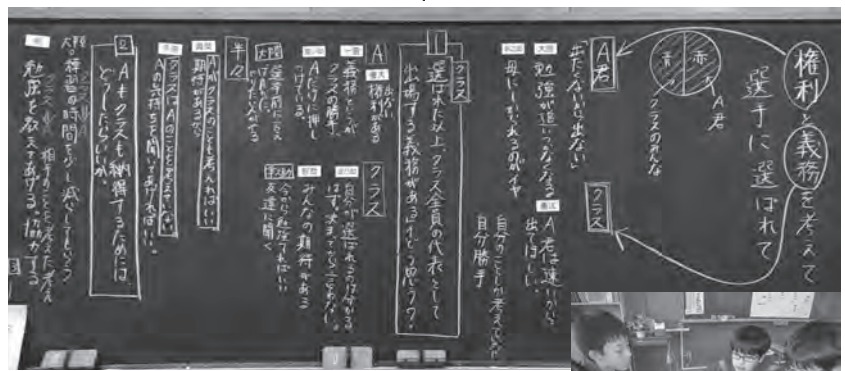 権利と義務を考えて
選手に選ばれて
赤
青
A君
クラスのみんな
A君
「出たくないから出ない」
クラス
勉強が追いつかなくなる
母にしかられるのがイヤ
A君は速いから
出てほしい
自分のことしか考えていない
自分勝手
1
クラス
選ばれた以上、クラス全員の代表として
出場する義務がある
どう思う?
A
出ない
権利がある
義務というか
クラスの勝手
Aだけに押し
つけている。
クラス
自分が選ばれるのは分かる
はず。決まってから言わない。
みんなの期待がある
今から勉強すればいい
友達に聞く
半々
Aがクラスのことも考えればいい。
期待があるから
クラスはAのことを考えていない
Aの気持ちを聞いてあげればいい。
2
Aもクラスも納得するためには、
どうしたらいいか。
練習の時間を少し減らしてもらう
クラス
相手のことを考えた考え
勉強を教えてあげる。協力する